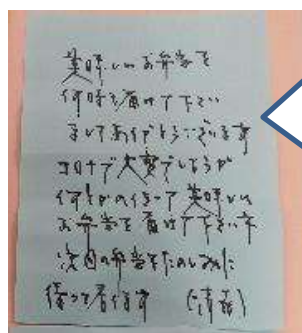 美味しいお弁当を
何時も届けて下さい
ましてありがとうございます
コロナで大変でしょうが
何とかのりきって美味しい
お弁当を届けて下さいませ
次回の弁当をたのしみに
待って居ります